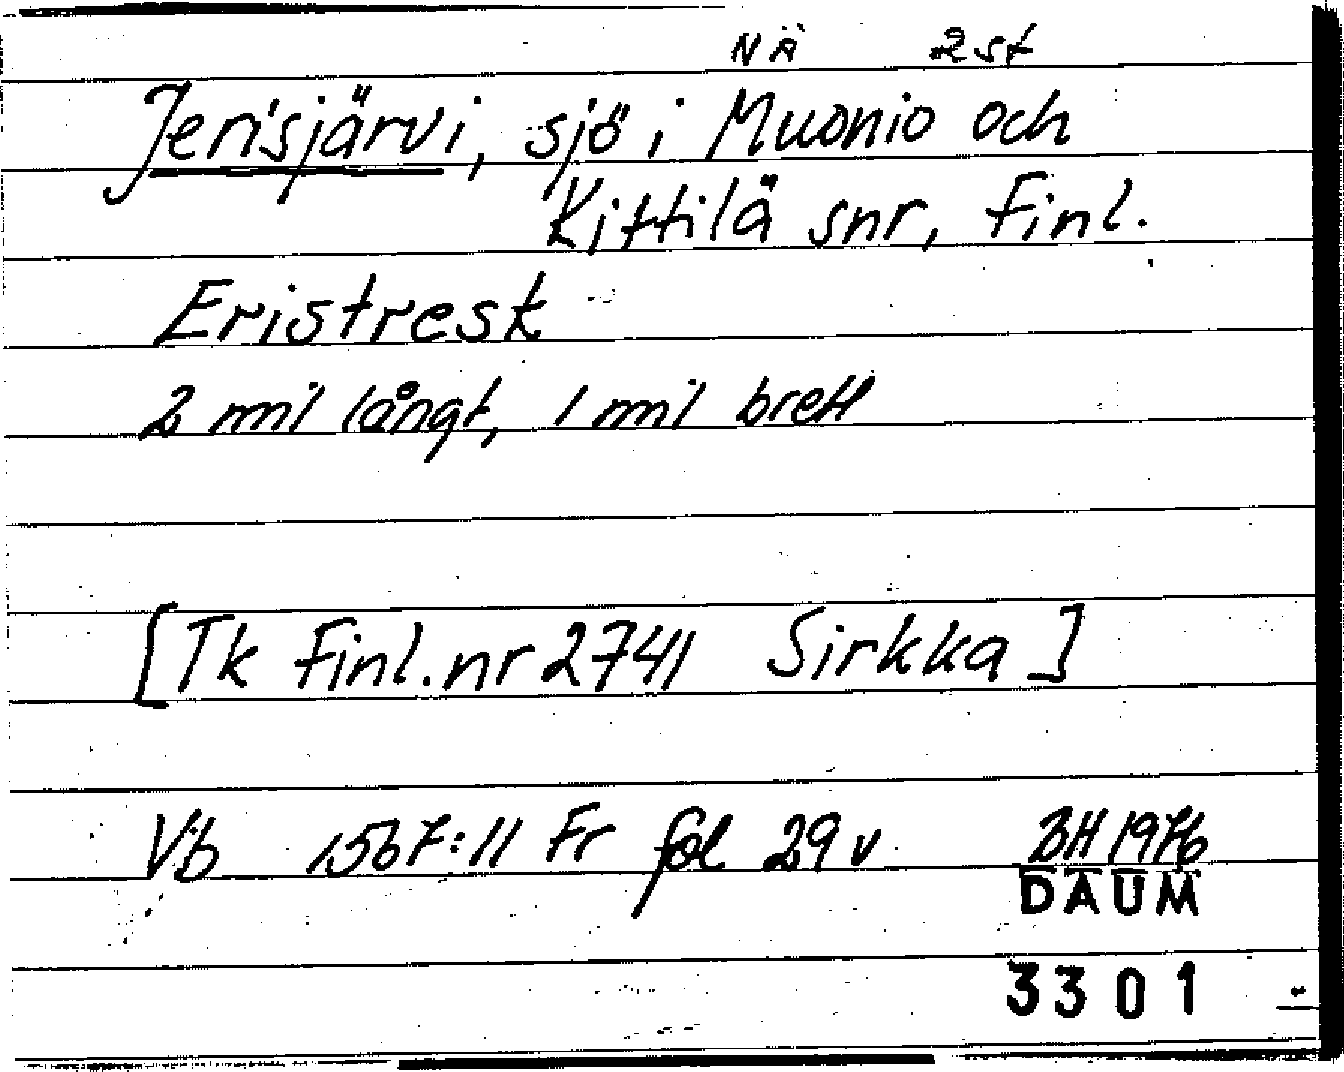 NÄ 2st
Jerisjärvi, sjö i Muonio och
Kittilä snr, Finl.
Eristresk
2 mil långt, 1 mil brett
[Tk Finl. nr 2741 Sirkka]
Vb 1567:11 Fr fol 29 v BH 1976
DAUM
3301